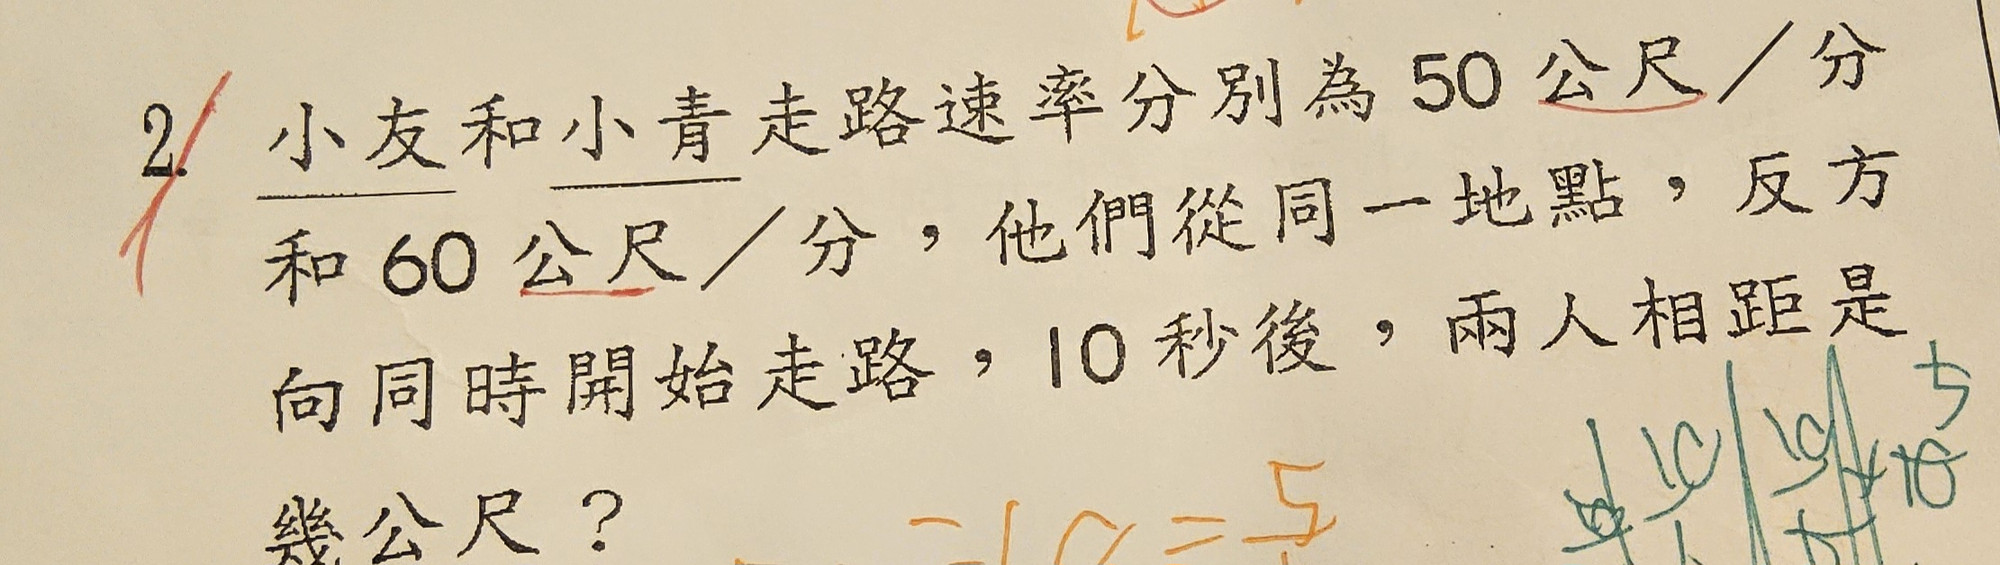 2. 小友和小青走路速率分別為 50 公尺／分
和 60 公尺／分，他們從同一地點，反方
向同時開始走路，10 秒後，兩人相距是
幾公尺？